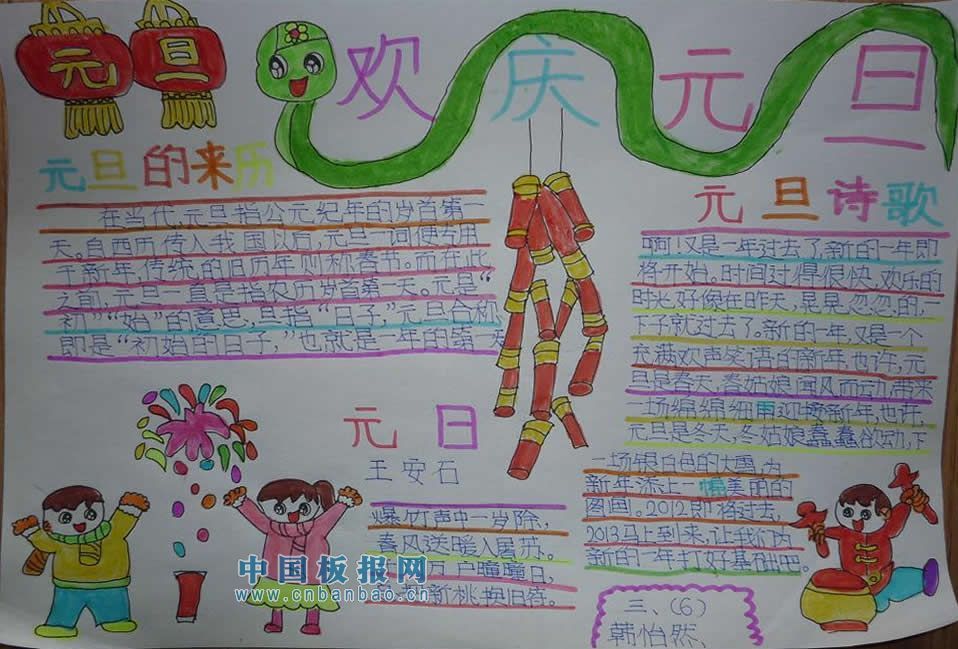 元旦
欢庆元旦
元旦的来历
在当代,元旦指公元纪年的岁首第一
天。自西历传入我国以后,元旦一词便专用
于新年,传统的旧历年则称春节。而在此
之前,元旦一直是指农历岁首第一天。元是“
初”“始”的意思,旦指“日子”,元旦合称
即是“初始的日子,”也就是一年的第一天
元旦诗歌
啊!又是一年过去了,新的一年即
将开始。时间过得很快,欢乐的
时光,好像在昨天,晃晃忽忽,的一
下子就过去了。新的一年,又是一个
充满欢声笑语的新年,也许,元
旦是春天,春姑娘闻风而动,带来
一场绵绵细雨迎接新年,也许,
元旦是冬天,冬姑娘蠢蠢欲动,下
一场银白色的大雪,为
新年添上一幅美丽的
图画。2012即将过去,
2013马上到来,让我们为
新的一年打好基础吧。
元日
王安石
爆竹声中一岁除,
春风送暖入屠苏。
万户曈曈日,
新桃换旧符。
三、(6)
韩怡然、
中国板报网
www.cnbanbao.cn